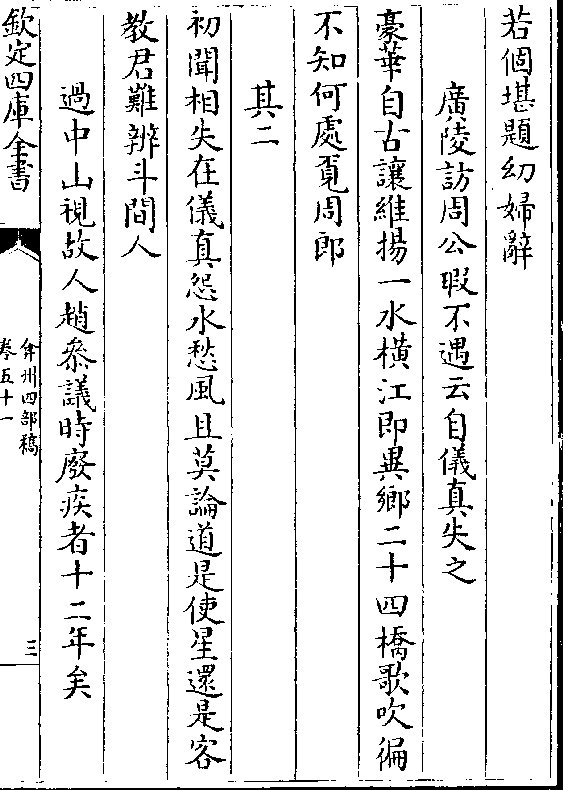 若個堪題幼婦辭
廣陵訪周公暇不遇云自儀真失之
豪華自古讓維揚一水橫江即異鄉二十四橋歌吹徧
不知何處覔周郎
其二
初聞相失在儀真怨水愁風且莫論道是使星還是客
教君難辨斗間人
過中山視故人趙叅議時廢疾者十二年矣
欽定四庫全書
弇州四部稿
卷五十一
三